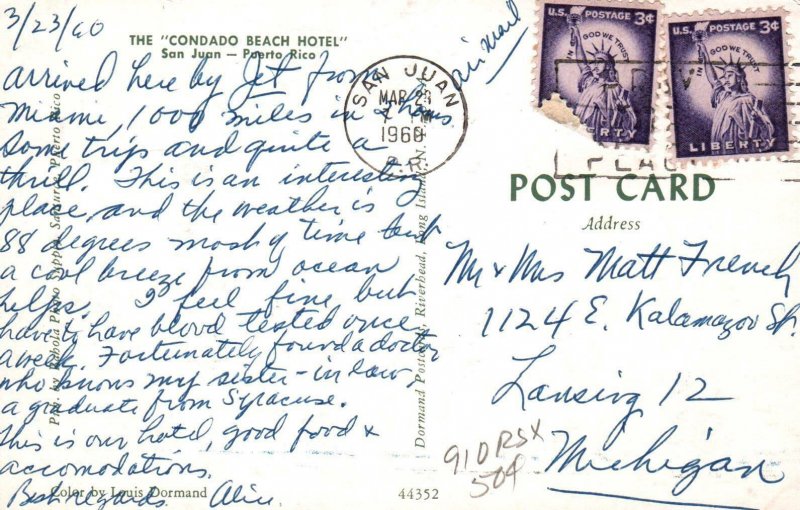 3/23/60
THE "CONDADO BEACH HOTEL"
San Juan — Puerto Rico
air mail
arrived here by Jet from
Miami, 1000 miles in 2 hours
some trip and quite a
thrill. This is an interesting
place and the weather is
88 degrees most of time but
a cool breeze from ocean
helps. I feel fine but
have to have blood tested once
a week. Fortunately found a doctor
who knows my sister-in-law,
a graduate from Syracuse.
This is our hotel, good food &
accomodations.
Best regards. Alice.
Color by Louis Dormand
44352
Dormand Postcards, Riverhead, Long Island, N.
SAN JUAN
MAR 23
1960
P.R.
U.S. POSTAGE 3¢
IN GOD WE TRUST
LIBERTY
U.S. POSTAGE 3¢
IN GOD WE TRUST
LIBERTY
POST CARD
Address
Mr & Mrs Matt French
1124 E. Kalamazoo St.
Lansing 12
Michigan
50¢